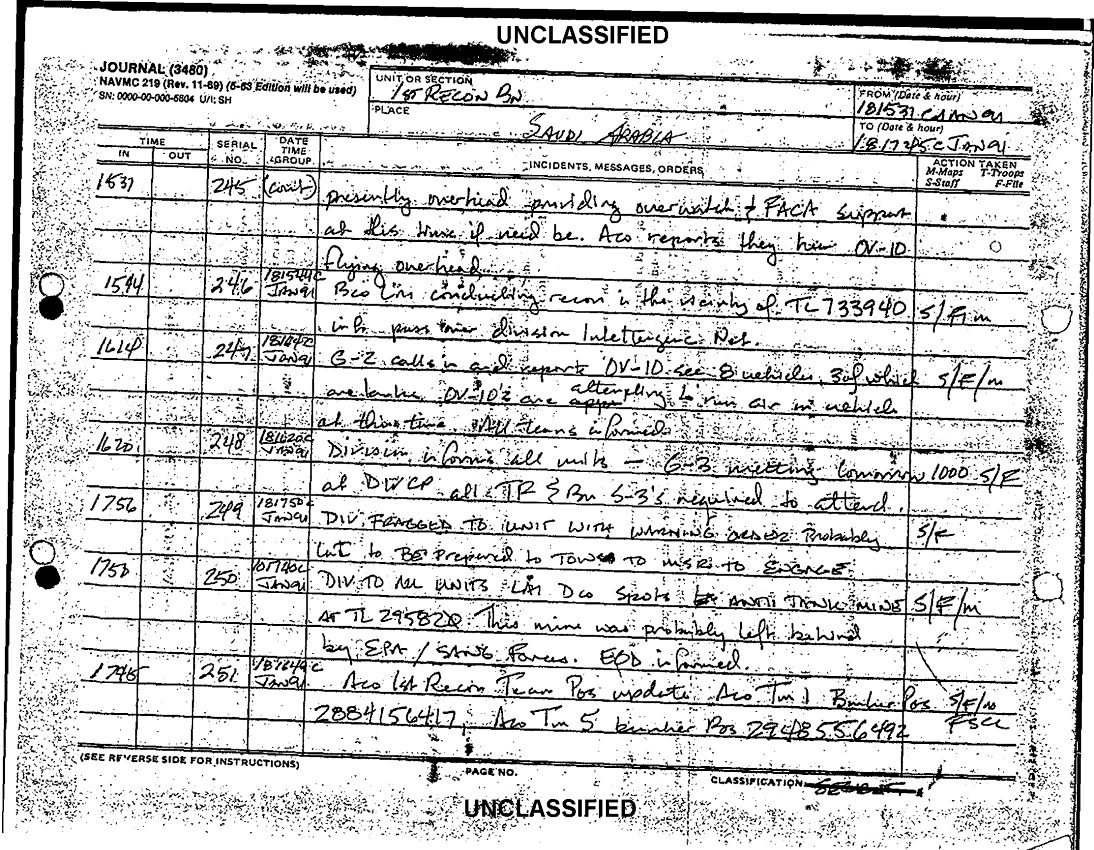 UNCLASSIFIED
JOURNAL (3480)
NAVMC 219 (Rev. 11-69) (6-63 Edition will be used)
SN: 0000-00-000-5804 U/I: SH
UNIT OR SECTION
1st RECON BN
PLACE
SAUDI ARABIA
FROM (Date & hour)
TO (Date & hour)
181745C JAN 91
TIME
IN OUT
SERIAL NO.
DATE TIME GROUP
INCIDENTS, MESSAGES, ORDERS
ACTION TAKEN
M-Maps T-Troops
S-Staff F-File
1531 245 (cont) presently overhead providing overwatch & FACA support
at this time if need be. Aco reports they have OV-10
flying overhead.
1544 246 181544C JAN91 Bco conducting recon in the vicinity of TL 733940 S/F/m
info pass over division Net.
247 JAN91 G-2 calls in and reports OV-10 see 8 vehicles, 3 of which S/F/m
are tanks. OV-10's are attempting to run air on vehicle
at this time. All teams informed.
1620 248 181620C JAN91 Division informs all units — G-3 meeting tomorrow 1000 S/F
at DIV CP all & Bn S-3's required to attend.
249 181750C JAN91 DIV FRAGGED TO UNIT WITH WARNING ORDER Probably S/F
to BE prepared to to ENGAGE
1750 250 JAN91 DIV TO ALL UNITS LAI Dco Spots ANTI TANK MINE S/F/m
AT TL 295820 This mine was probably left behind
by EPA / SANG Forces. EOD informed.
1745 251 JAN91 Aco 1st Recon Team Pos update. Aco Tm 1 Bunker Pos S/F/m
2884156417, Aco Tm 5 bunker Pos 2948556492 FSCC
(SEE REVERSE SIDE FOR INSTRUCTIONS)
PAGE NO.
CLASSIFICATION
UNCLASSIFIED